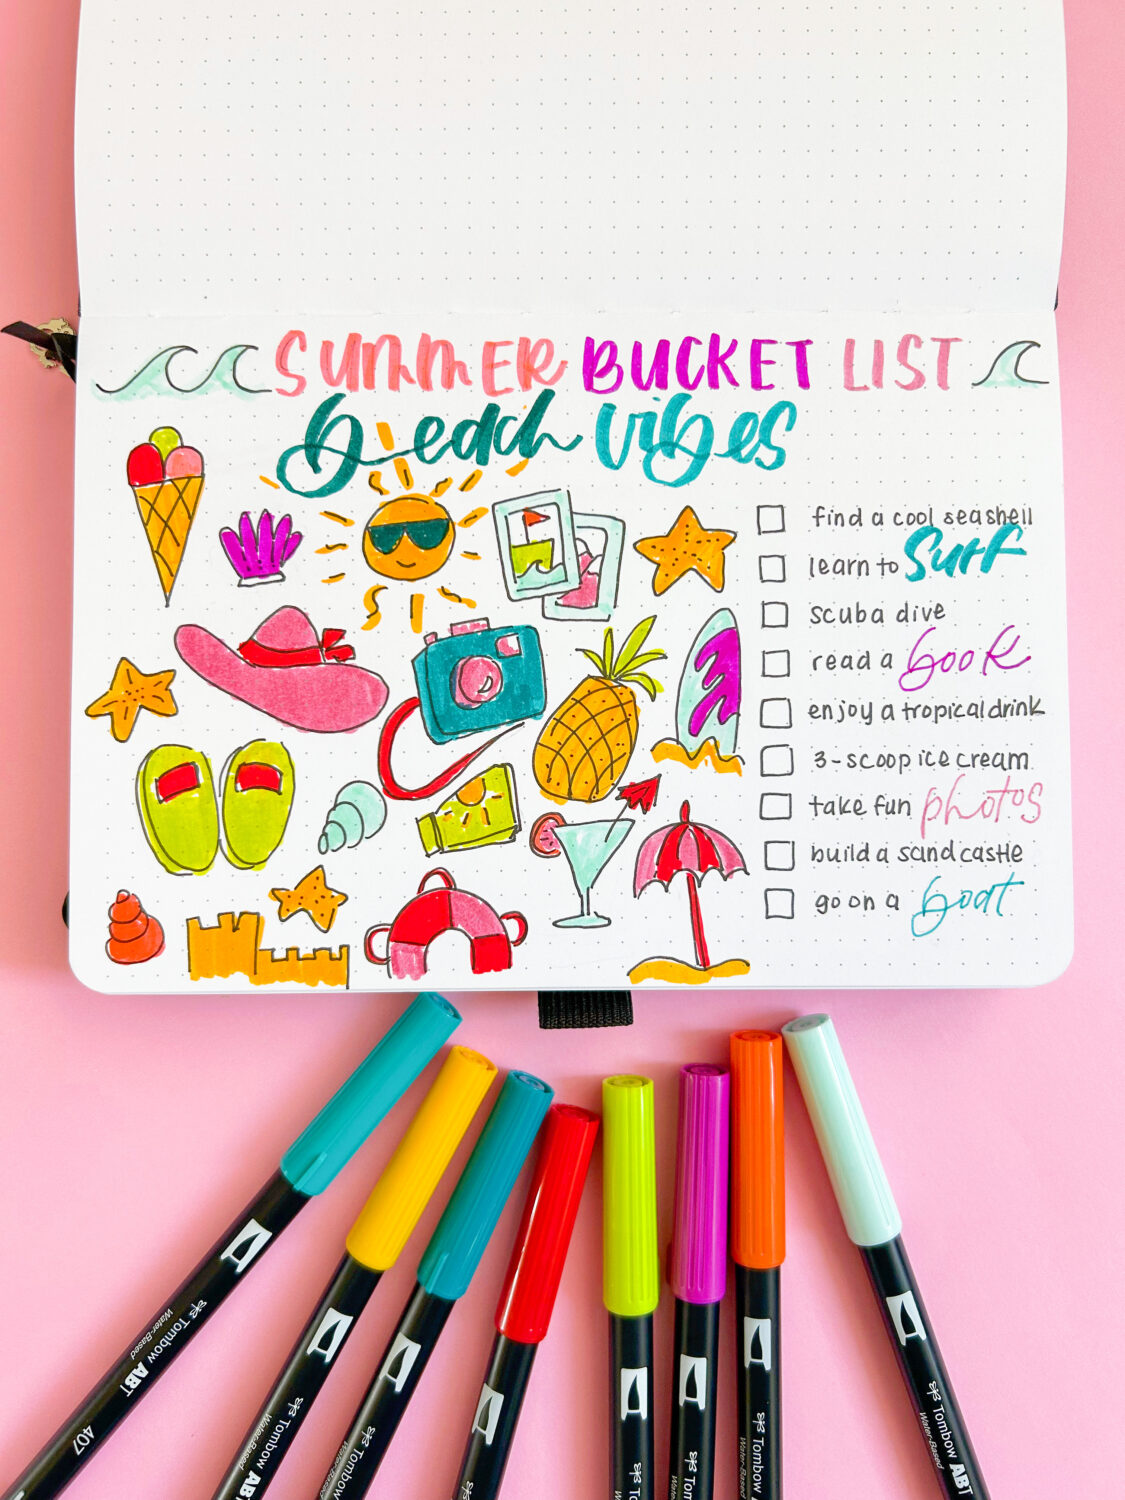 SUMMER BUCKET LIST
beach vibes
find a cool seashell
learn to surf
scuba dive
read a book
enjoy a tropical drink
3-scoop ice cream
take fun photos
build a sandcastle
go on a boat
407 Water-Based Tombow ABT
Water-Based Tombow ABT
Water-Based Tombow
Tombow
Water-Based Tombow
Tombow ABT
Water-Based